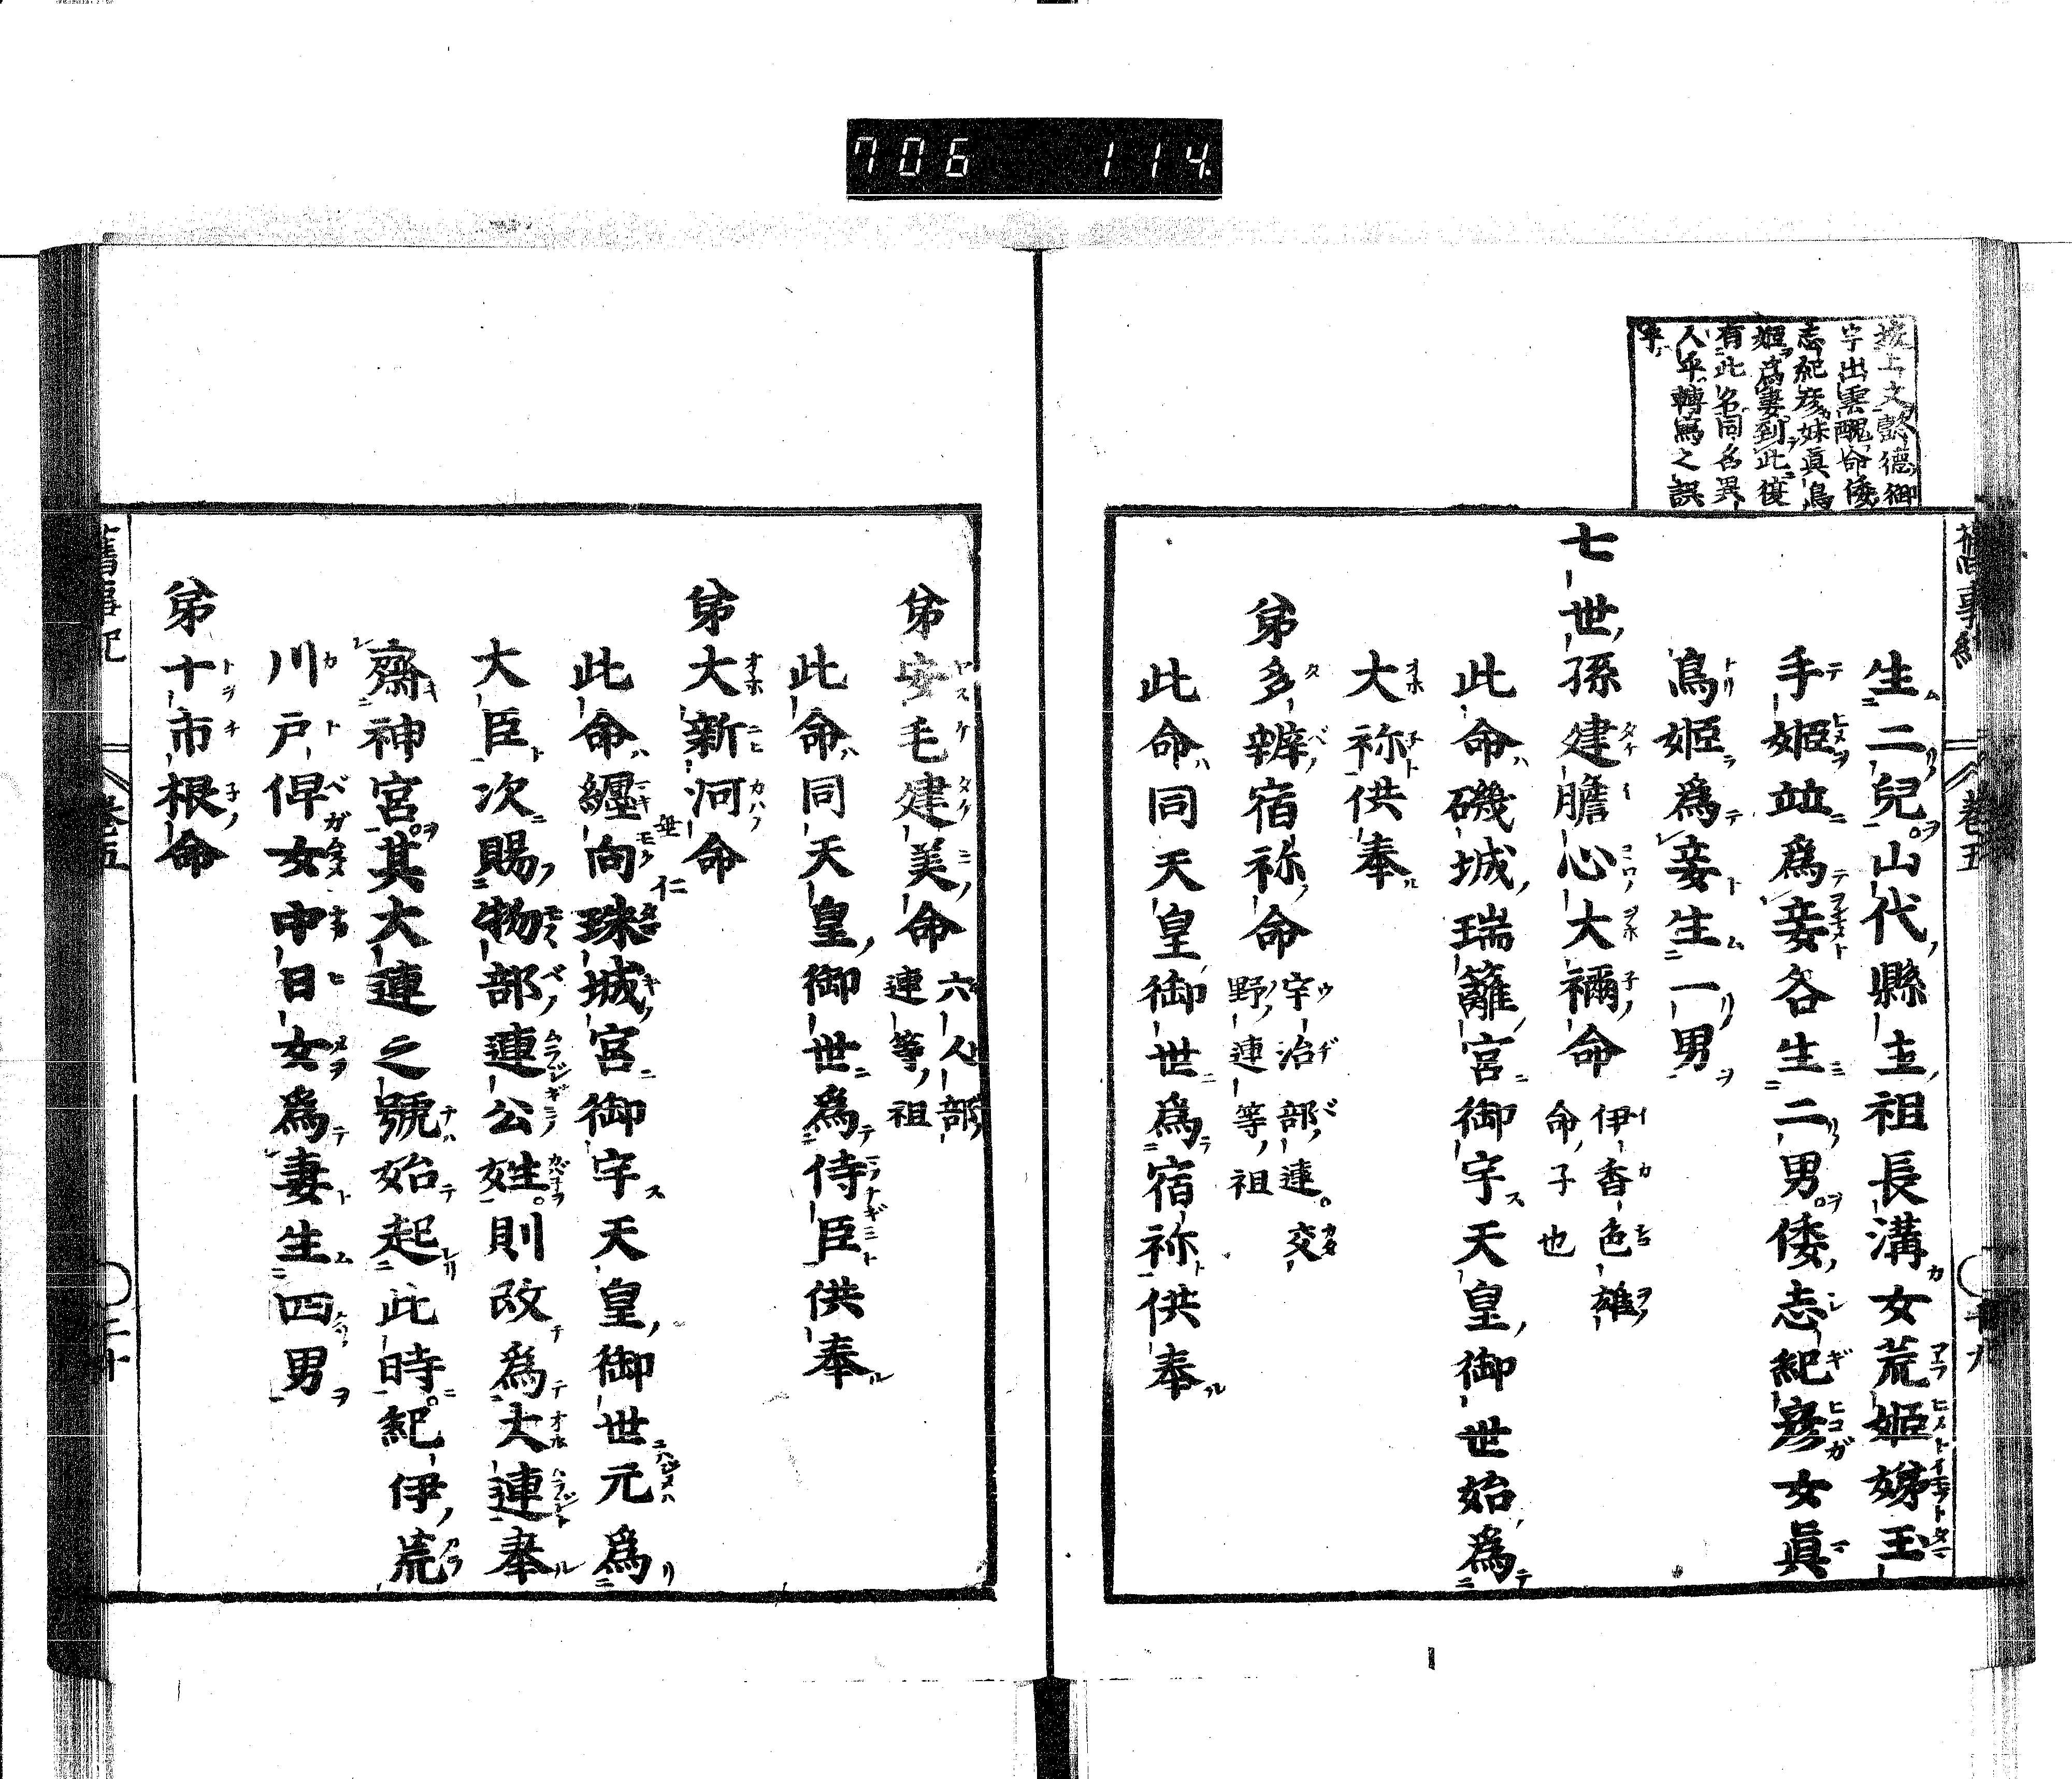 706 114
按上文懿德御
宇出雲醜命倭
志紀彦妹眞鳥
姫爲妻到此復
有此名同名異
人乎轉寫之誤
乎
舊事紀 卷五 ○十九
生二兒山代縣主祖長溝女荒姫娣玉
手姫竝爲妾各生二男倭志紀彦女眞
鳥姫爲妾生一男
七世孫建膽心大禰命 伊香色雄
命子也
此命磯城瑞籬宮御宇天皇御世始爲
大祢供奉
弟多辨宿祢命 宇治部連交
野連等祖
此命同天皇御世爲宿祢供奉
弟安毛建美命 六人部
連等祖
此命同天皇御世爲侍臣供奉
弟大新河命
此命纏向珠城宮御宇天皇御世元爲
垂仁
大臣次賜物部連公姓則改爲大連奉
齋神宮其大連之號始起此時紀伊荒
川戸俾女中日女爲妻生四男
弟十市根命
舊事紀 卷五 ○二十